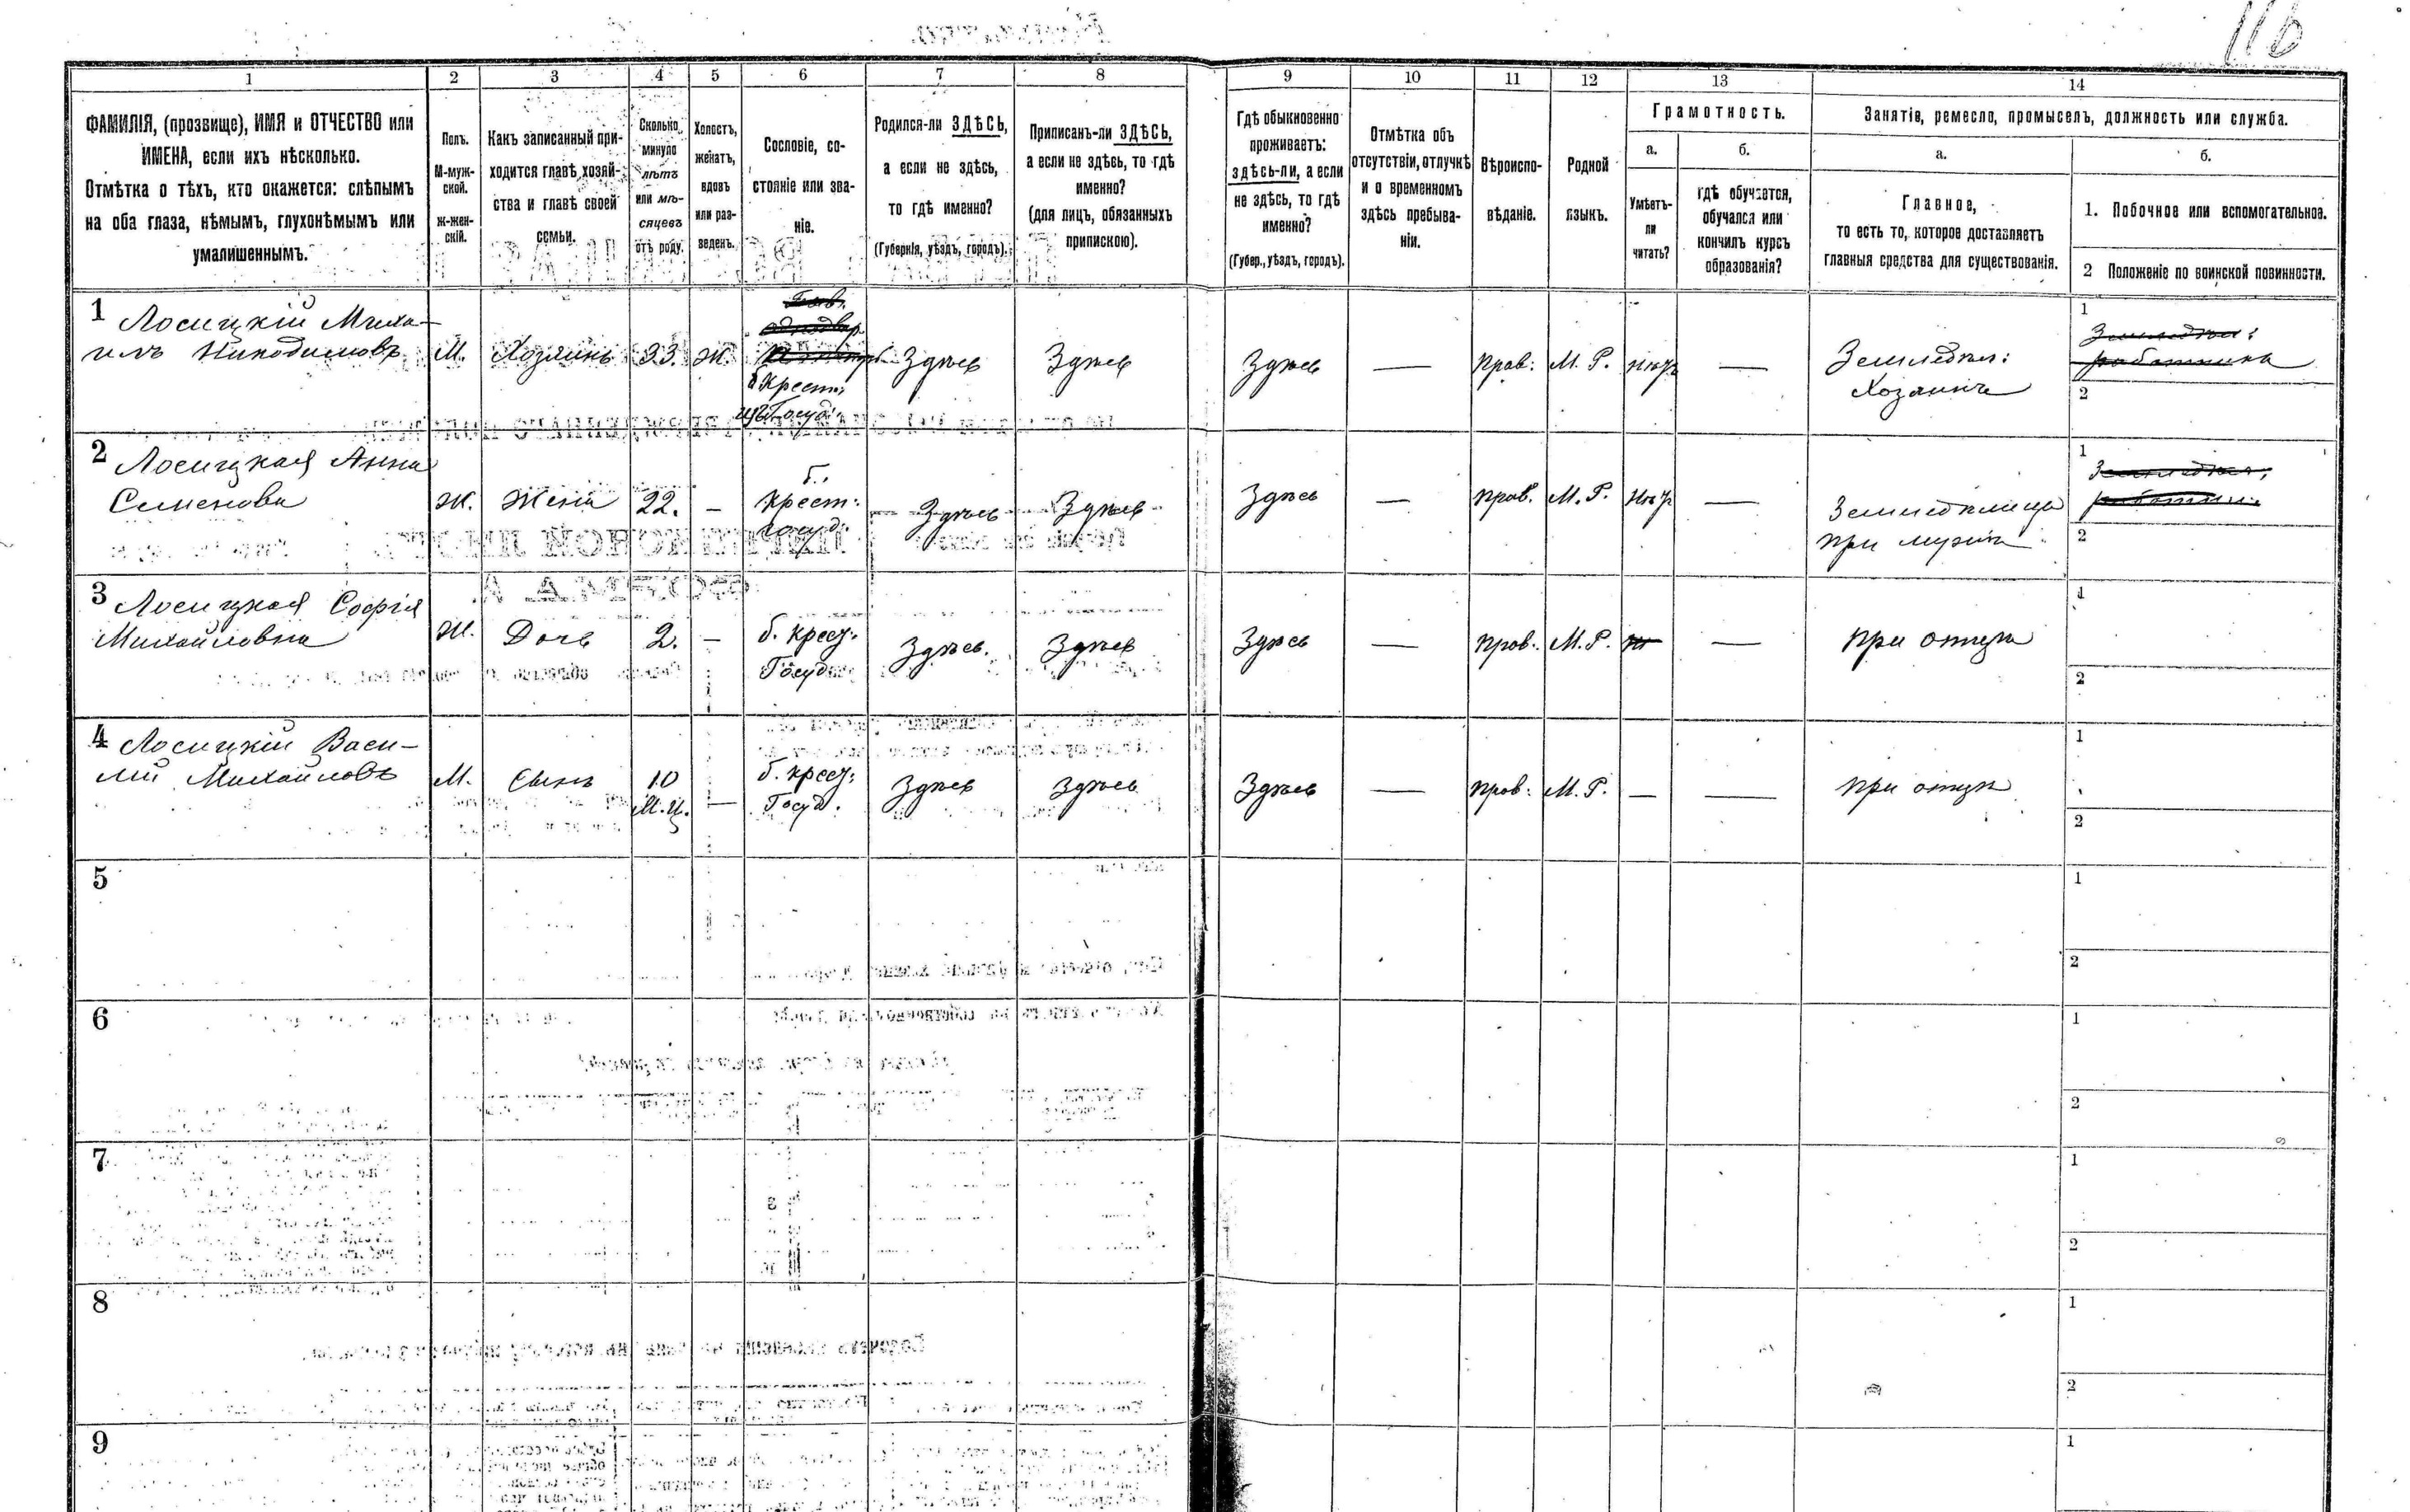 116
1
2
3
4
5
6
7
8
9
10
11
12
13
14
ФАМИЛІЯ, (прозвище), ИМЯ и ОТЧЕСТВО или
ИМЕНА, если ихъ нѣсколько.
Отмѣтка о тѣхъ, кто окажется: слѣпымъ
на оба глаза, нѣмымъ, глухонѣмымъ или
умалишеннымъ.
Полъ.
М-муж-
ской.
ж-жен-
скій.
Какъ записанный при-
ходится главѣ хозяй-
ства и главѣ своей
семьи.
Сколько
минуло
лѣтъ
или мѣ-
сяцевъ
отъ роду.
Холостъ,
женатъ,
вдовъ
или раз-
веденъ.
Сословіе, со-
стояніе или зва-
ніе.
Родился-ли ЗДѢСЬ,
а если не здѣсь,
то гдѣ именно?
(Губернія, уѣздъ, городъ).
Приписанъ-ли ЗДѢСЬ,
а если не здѣсь, то гдѣ
именно?
(для лицъ, обязанныхъ
припискою).
Гдѣ обыкновенно
проживаетъ:
здѣсь-ли, а если
не здѣсь, то гдѣ
именно?
(Губер., уѣздъ, городъ).
Отмѣтка объ
отсутствіи, отлучкѣ
и о временномъ
здѣсь пребыва-
ніи.
Вѣроиспо-
вѣданіе.
Родной
языкъ.
Грамотность.
а.
Умѣетъ-
ли
читать?
б.
гдѣ обучается,
обучался или
кончилъ курсъ
образованія?
Занятіе, ремесло, промыселъ, должность или служба.
а.
Главное,
то есть то, которое доставляетъ
главныя средства для существованія.
б.
1. Побочное или вспомогательное.
2 Положеніе по воинской повинности.
1 Лосицкій Миха-
илъ Никодимовъ
М.
Хозяинъ
33.
Ж.
б. Крест.
изъ Госуд.
Здѣсь
Здѣсь
Здѣсь
—
Прав:
М. Р.
нѣтъ
—
Земледѣл:
Хозяинъ
1
2
2 Лосицкая Анна
Семенова
Ж.
Жена
22.
–
б.
Крест:
госуд.
Здѣсь
Здѣсь
Здѣсь
—
Прав.
М. Р.
нѣтъ
—
Земледѣлица
при мужѣ
1
2
3 Лосицкая Софія
Михайловна
Ж.
Дочь
2.
–
б. Крест:
Госуд.
Здѣсь.
Здѣсь
Здѣсь
—
Прав.
М. Р.
—
При отцѣ
1
2
4 Лосицкій Васи-
лій Михайловъ
М.
Сынъ
10
М.ц.
—
б. Крест:
Госуд.
Здѣсь
Здѣсь
Здѣсь
—
Прав:
М. Р.
—
—
При отцѣ
1
2
5
1
2
6
1
2
7
1
2
8
1
2
9
1